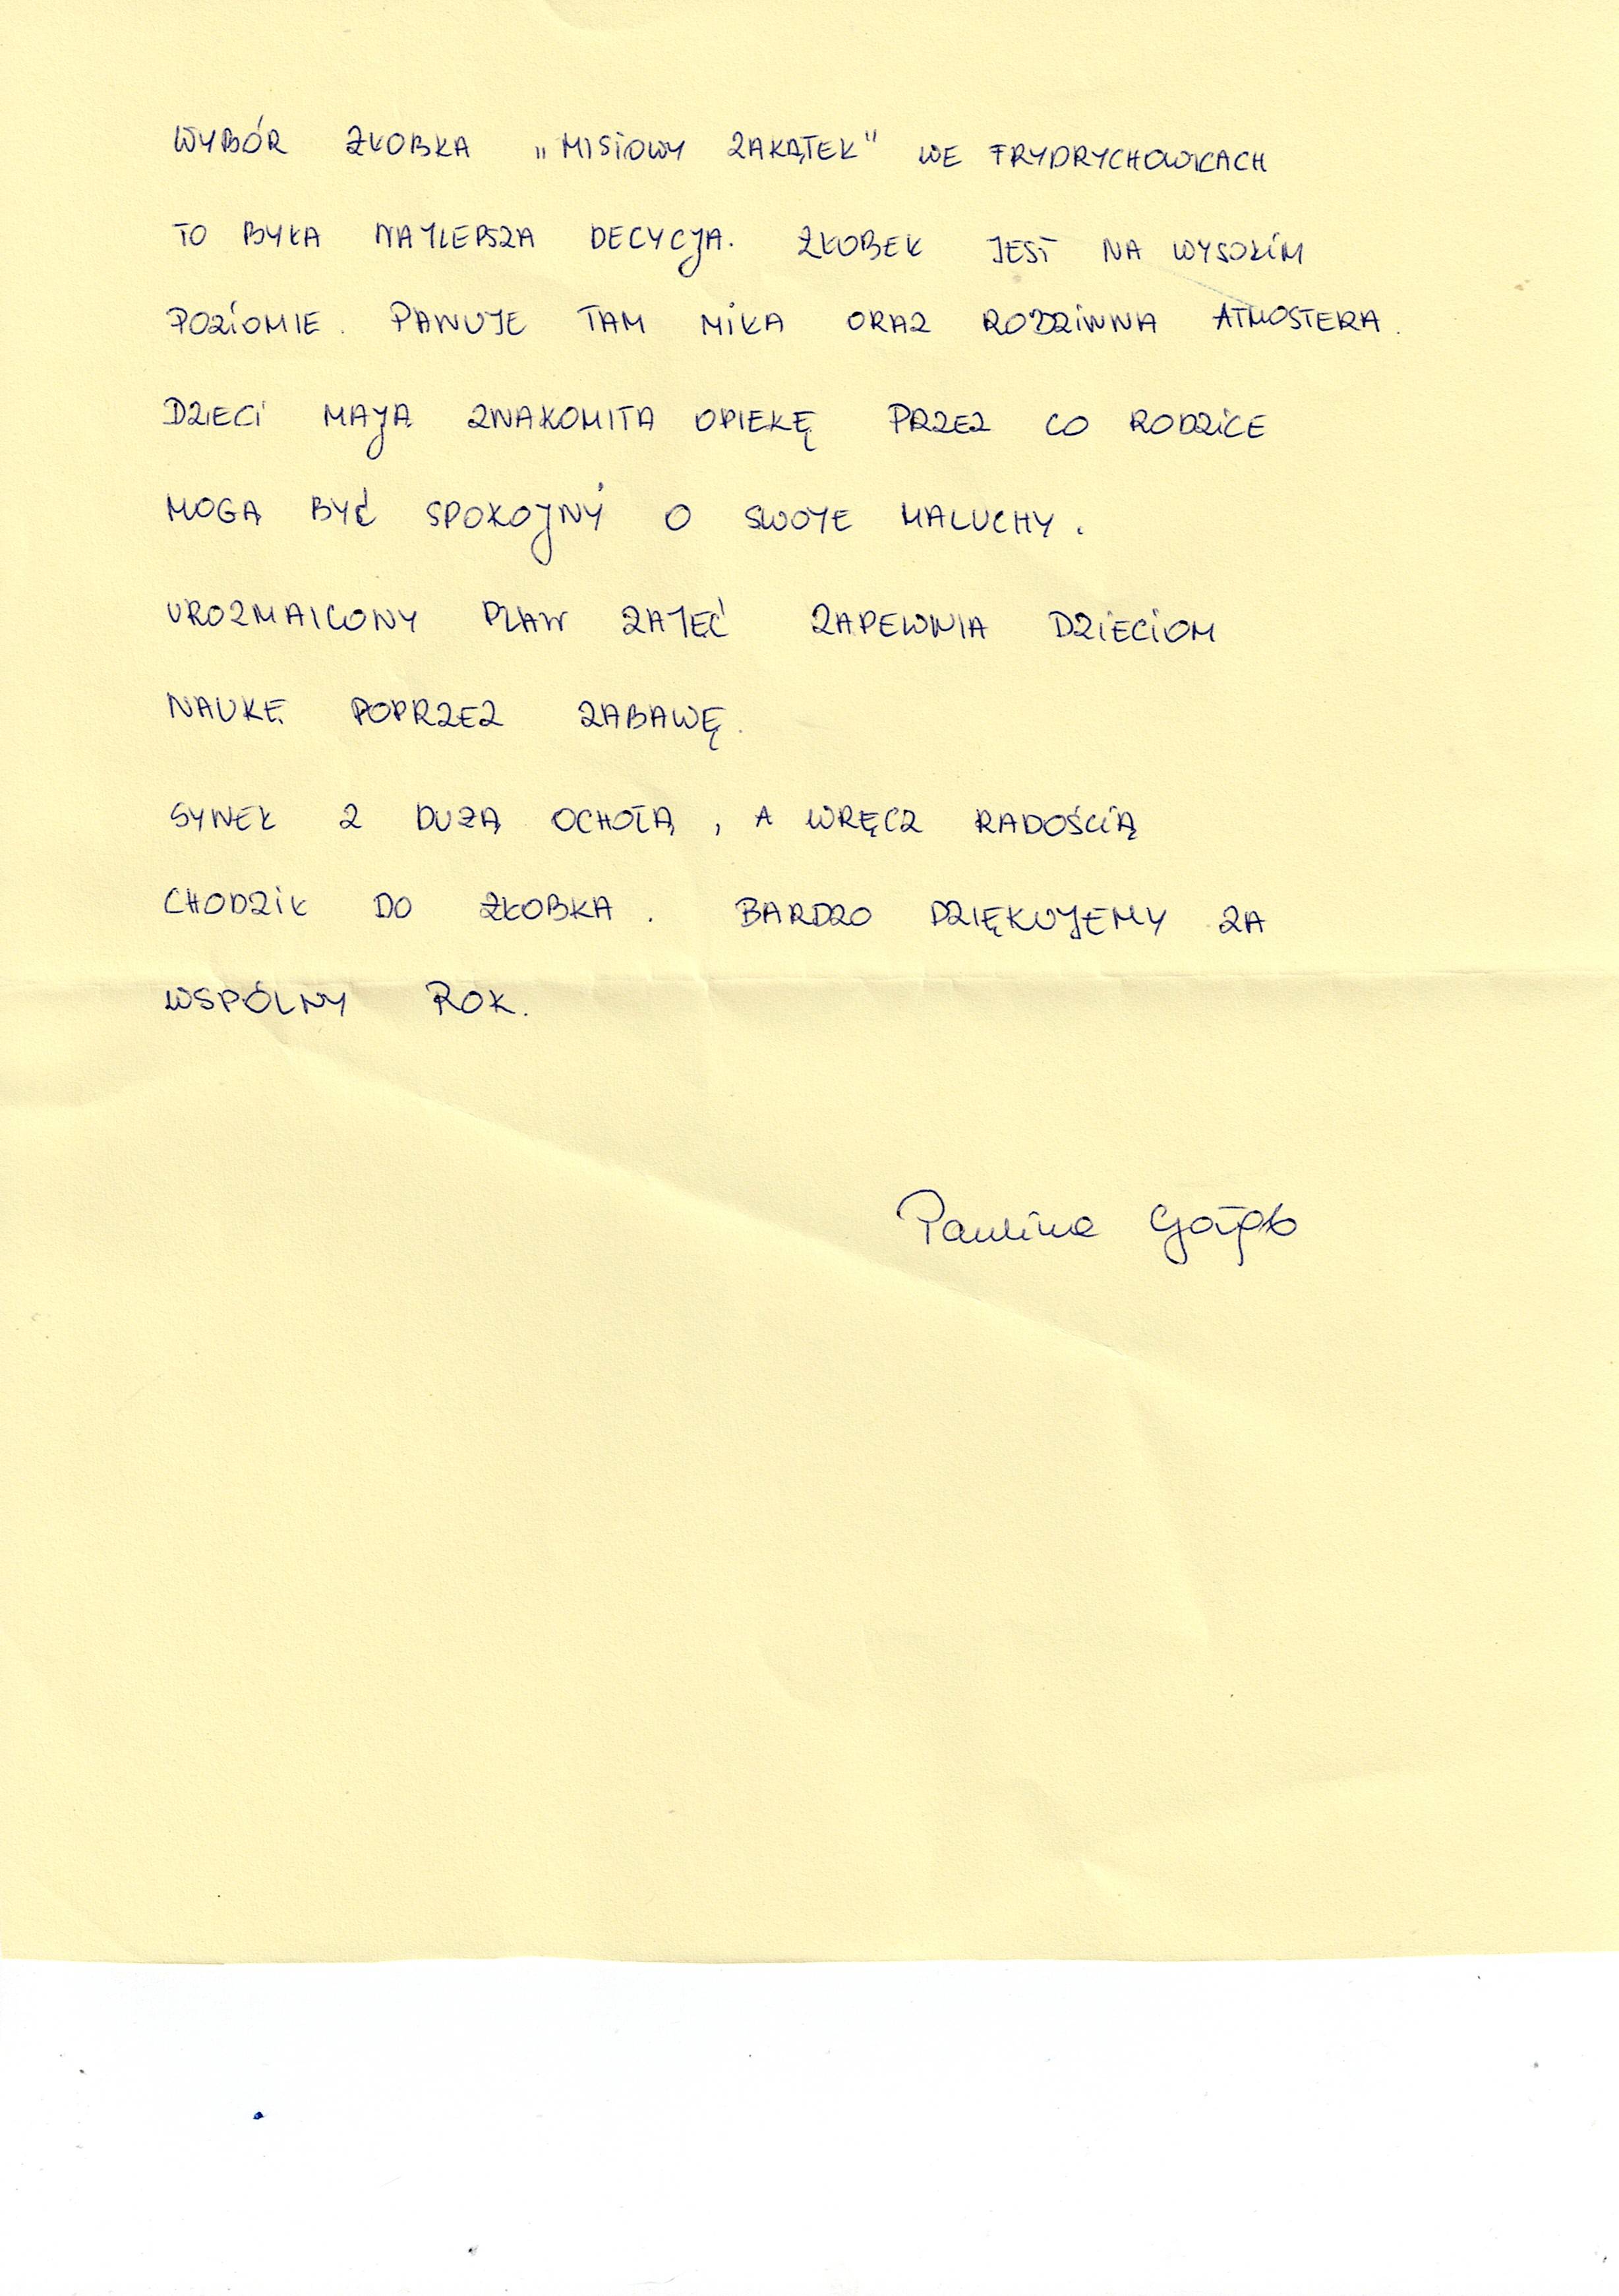 WYBÓR ŻŁOBKA „MISIOWY ZAKĄTEK" WE FRYDRYCHOWICACH
TO BYŁA NAJLEPSZA DECYCJA. ŻŁOBEK JEST NA WYSOKIM
POZIOMIE. PANUJE TAM MIŁA ORAZ RODZINNA ATMOSFERA.
DZIECI MAJĄ ZNAKOMITĄ OPIEKĘ PRZEZ CO RODZICE
MOGĄ BYĆ SPOKOJNY O SWOJE MALUCHY.
UROZMAICONY PLAN ZAJĘĆ ZAPEWNIA DZIECIOM
NAUKĘ POPRZEZ ZABAWĘ.
SYNEK Z DUŻĄ OCHOTĄ, A WRĘCZ RADOŚCIĄ
CHODZIŁ DO ŻŁOBKA. BARDZO DZIĘKUJEMY ZA
WSPÓLNY ROK.
Paulina Gołąb